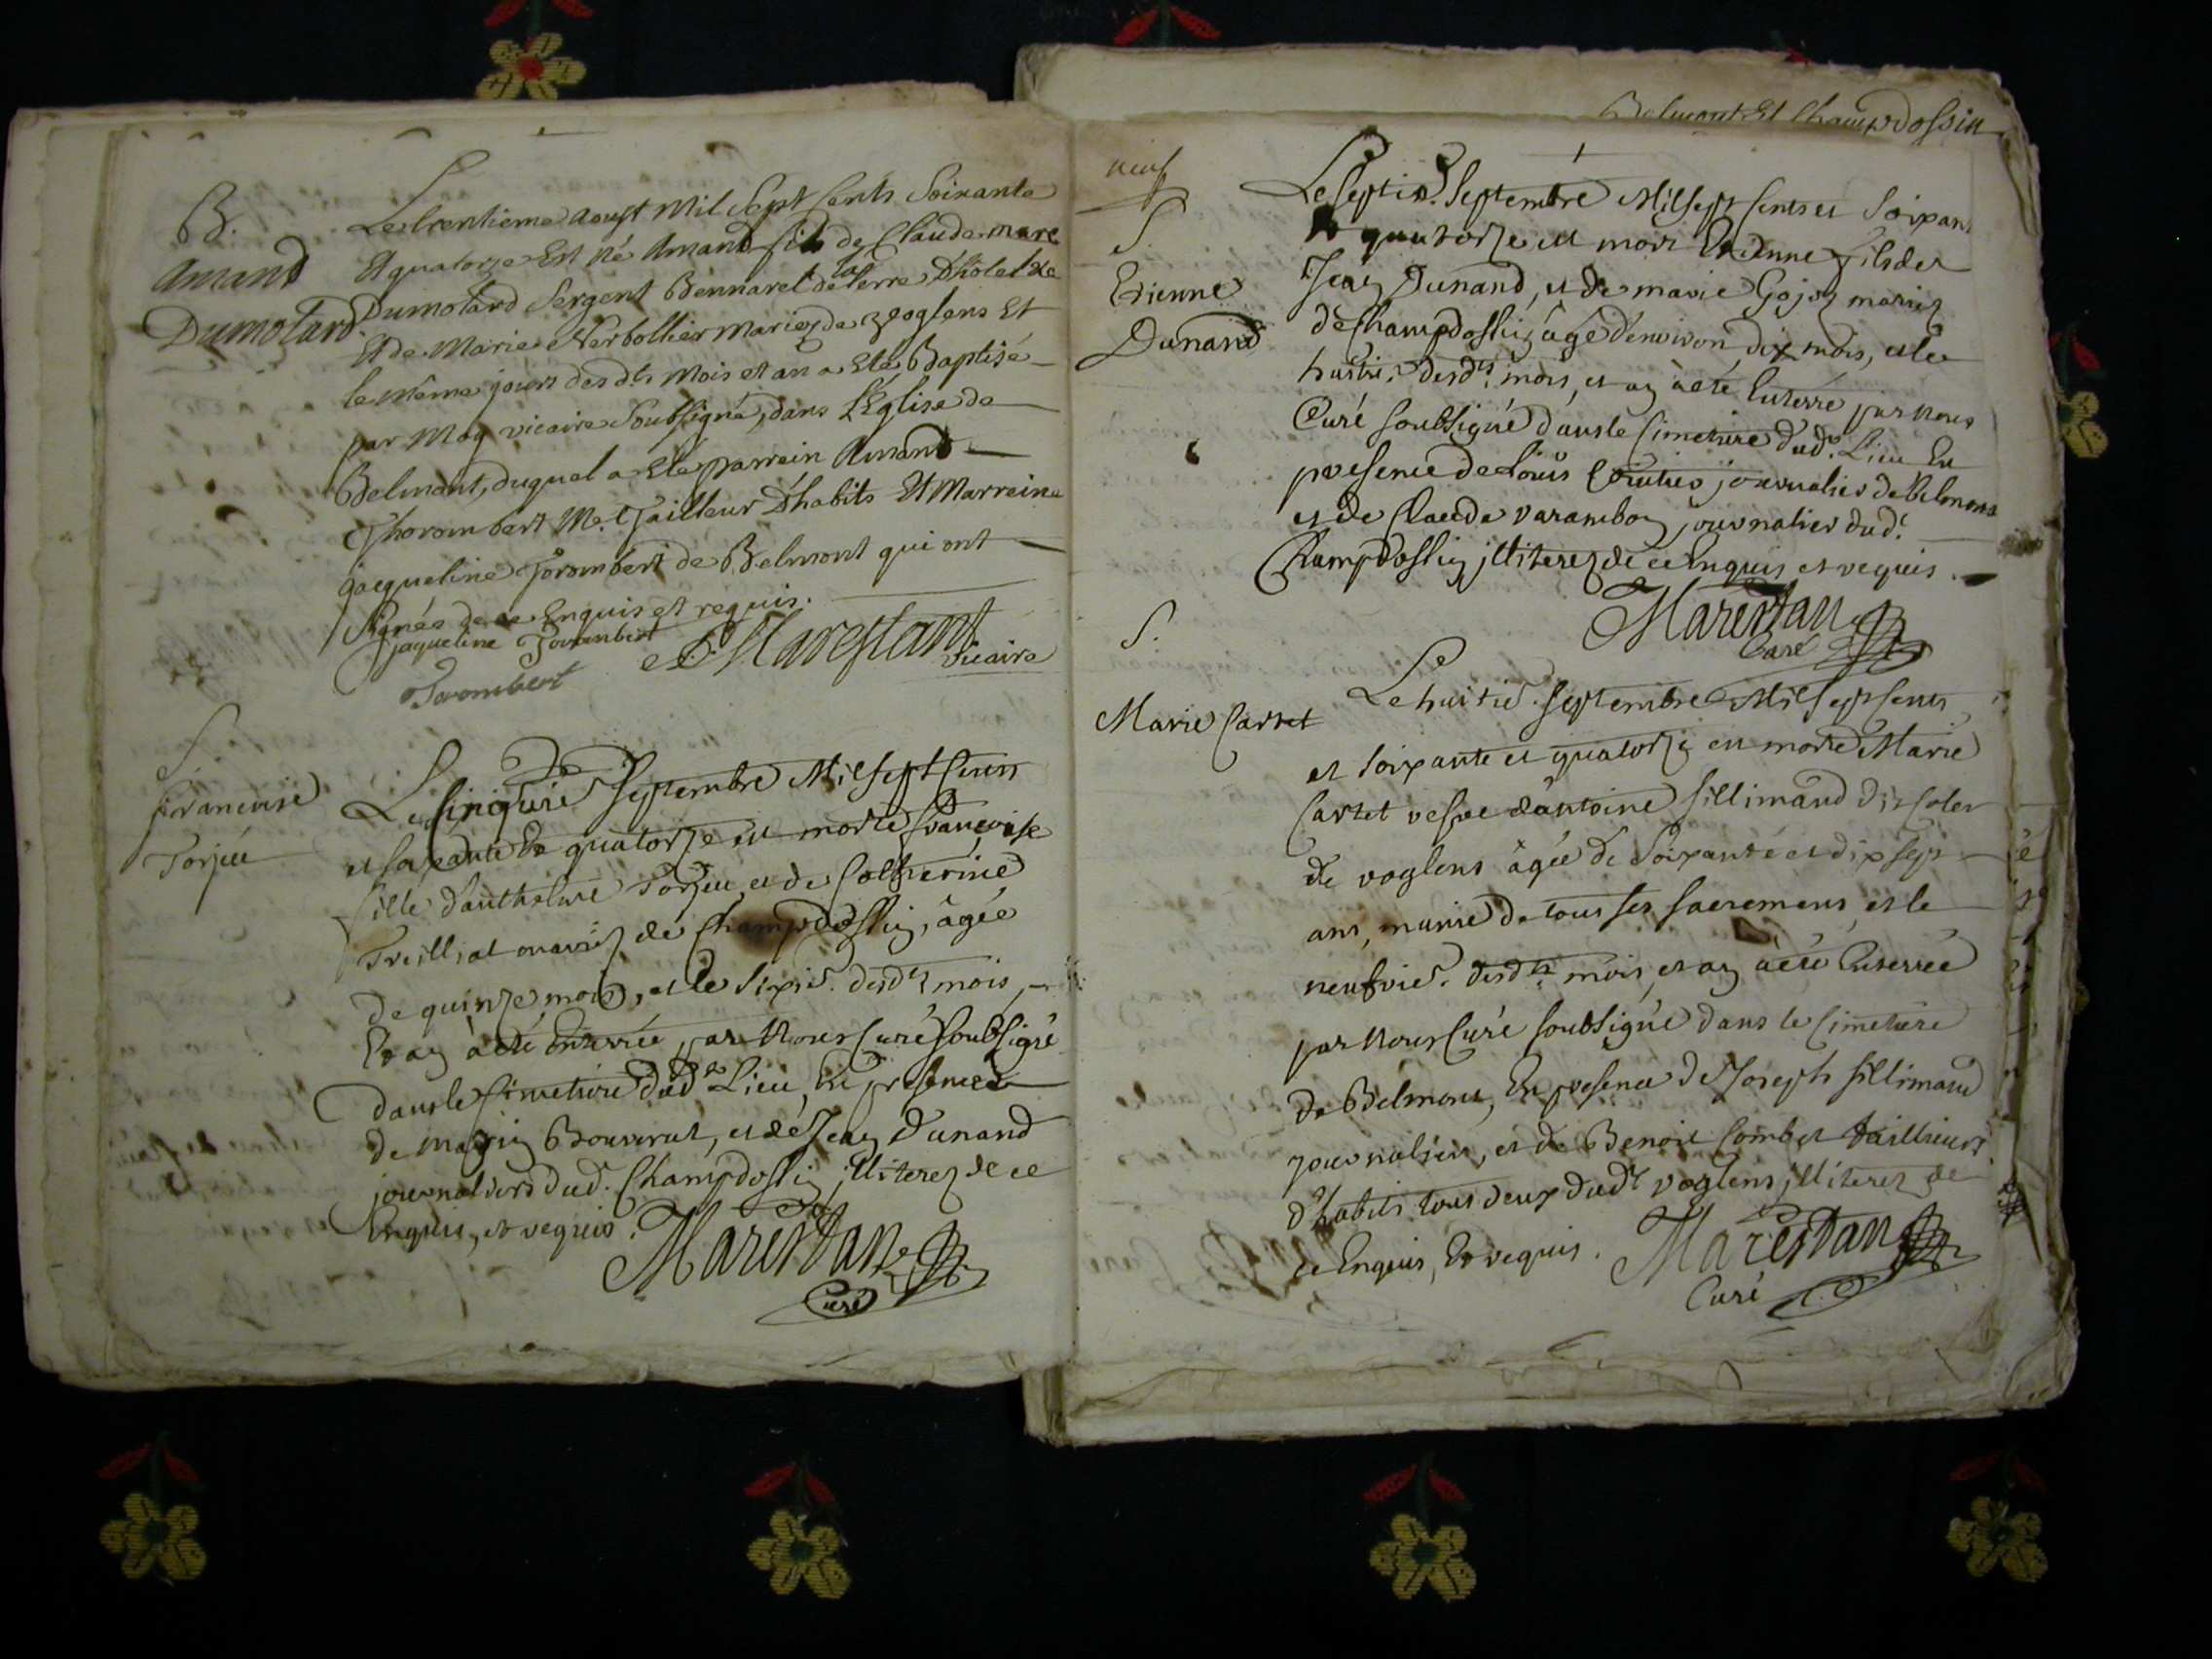 B.
Amand
Dumolard
Le trentieme aoust Mil Sept Cents Soixante
Et quatorze Est né Amand fils de Claude marc
Dumolard Sergent Bennarel de la terre D'hotel de
Et de Marie Nerbollier mariez de voglens Et
le même jour desdts mois et an a Eté Baptisé
par Moy vicaire Soubsigné, dans L'Eglise de
Belmont, duquel a Eté parrain Amand
Thorombert Me. Tailleur D'habits Et Marreine
jacqueline Torombert de Belmont qui ont
Signés de ce Enquis et requis.
jaqueline Torombert
Torombert
Marestant
vicaire
S.
francoise
Torjeu
Le Cinquie. Septembre Mil sept Cents
et soixante Et quatorze est morte françoise
fille d'anthelme Torjeu, et de Catherine
Treilliat mariez de Champdossin, âgée
de quinze mois, et le Sixie. desdts mois,
Et an à été Enterrée par Nous Curé Soubsigné
dans le Cimetiere dudt Lieu, En présence
de marin Bouverat, et de Jean Dunand
journaliers dudt. Champdossin illiterez de ce
Enquis, et requis.
Marestan
Curé
Belmont Et Champdossin
neuf
S.
Etienne
Dunand
Le septie. Septembre Mil sept Cents et Soixan
quatorze est mort Etienne fils de
Jean Dunand, et de marie Gojoz mariez
de Champdossin âgé d'environ dix mois, et le
huitie. desdts. mois, et an à été Enterré par nous
Curé soubsigné dans le Cimetiere dudt. Lieu En
presence de Louis journalier de Belmont
et de Claude varambon journalier dudt.
Champdossin illiterez de ce Enquis et requis.
Marestan
Curé
S.
Marie Cartet
Le huitie. Septembre Mil sept Cents
et soixante et quatorze est morte Marie
Cartet vesve d'antoine Sillimand dit
de voglens âgée de Soixante et dix sept
ans, munie de tous ses sacremens, et le
neufvie. desdts. mois, et an à été Enterrée
par Nous Curé soubsigné dans le Cimetiere
de Belmont, En presence de Joseph Sillimand
journalier, et de Benoit Combet tailleurs
d'habits tous deux dudt voglens illiterez de
ce Enquis, Et requis.
Marestan
Curé